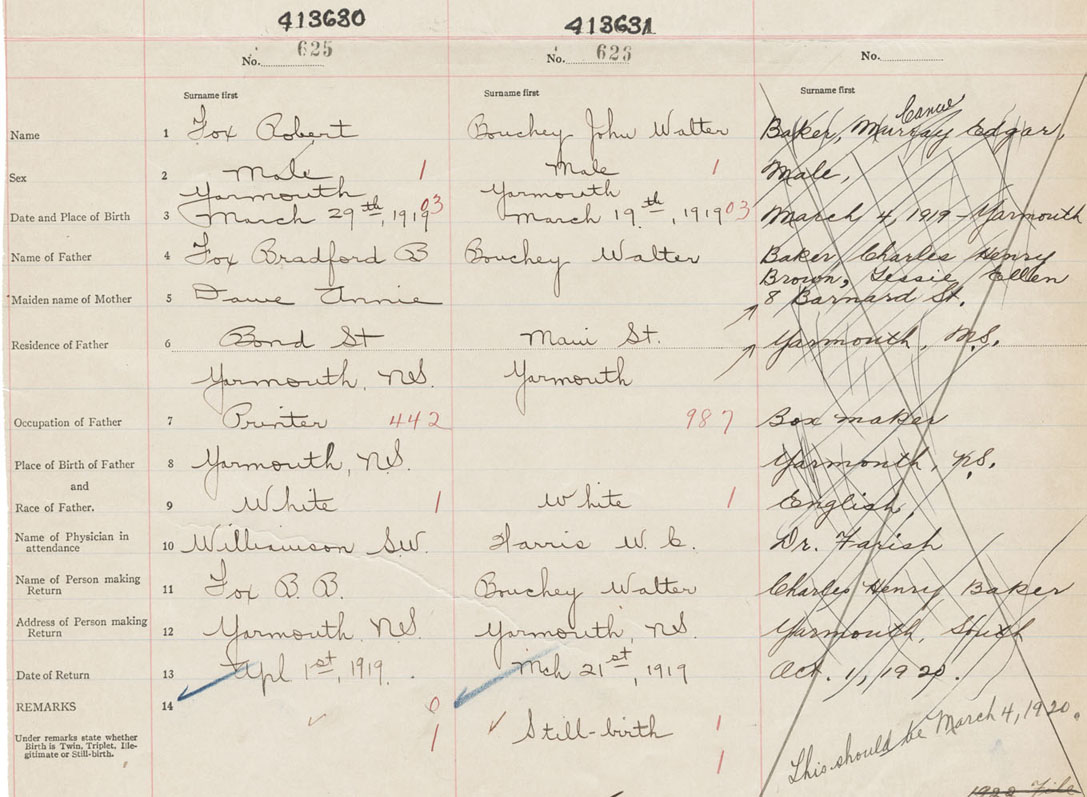 413630 413631
No. 625 No. 626 No.
Surname first Surname first Surname first
Name 1 Fox Robert Bouchey John Walter Baker, Murray Edgar,
Sex 2 Male 1 Male 1 Male,
Yarmouth Yarmouth
Date and Place of Birth 3 March 29th, 1919 03 March 19th, 1919 03 March 4, 1919 - Yarmouth
Name of Father 4 Fox Bradford B Bouchey Walter Baker Charles Henry
Brown, Jessie Ellen
Maiden name of Mother 5 Annie 8 Barnard St.
Residence of Father 6 Bond St Main St. Yarmouth, N.S.
Yarmouth, N.S. Yarmouth
Occupation of Father 7 Printer 442 987 Box maker
Place of Birth of Father 8 Yarmouth, N.S. Yarmouth, N.S.
and
Race of Father. 9 White 1 White 1 English,
Name of Physician in
attendance 10 Williamson S.W. Harris W. C. Dr. Farish
Name of Person making
Return 11 Fox B. B. Bouchey Walter Charles Henry Baker
Address of Person making
Return 12 Yarmouth, N.S. Yarmouth, N.S. Yarmouth, South
Date of Return 13 Apl 1st, 1919. Mch 21st, 1919 Oct. 1, 1920.
REMARKS 14 0
Under remarks state whether
Birth is Twin, Triplet, Ille-
gitimate or Still-birth. 1 Still-birth 1
1
This should be March 4, 1920.
1920 File